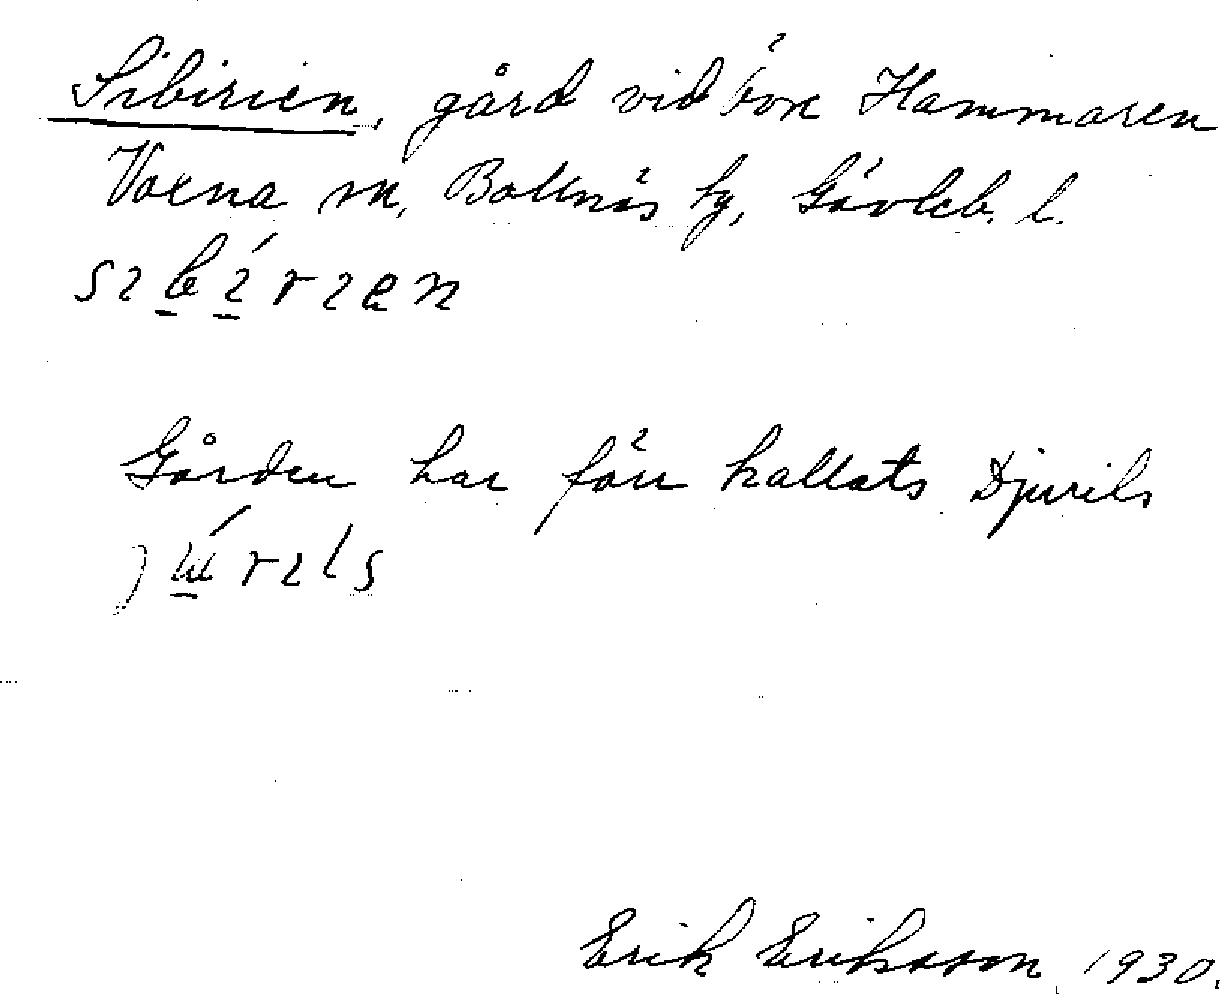 Sibirien, gård vid sjön Hammaren
Voxna sn, Bollnäs tg, Gävleb. l.
Gården har förr kallats Djurils
Erik Eriksson 1930.